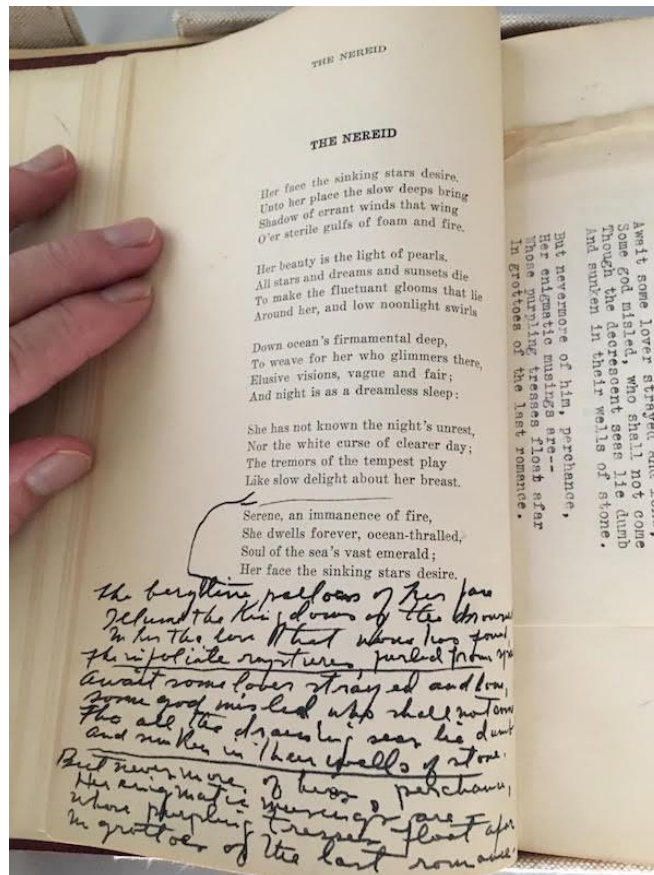 THE NEREID
THE NEREID
Her face the sinking stars desire.
Unto her place the slow deeps bring
Shadow of errant winds that wing
O'er sterile gulfs of foam and fire.
Her beauty is the light of pearls.
All stars and dreams and sunsets die
To make the fluctuant glooms that lie
Around her, and low noonlight swirls
Down ocean's firmamental deep,
To weave for her who glimmers there,
Elusive visions, vague and fair;
And night is as a dreamless sleep:
She has not known the night's unrest,
Nor the white curse of clearer day;
The tremors of the tempest play
Like slow delight about her breast.
Serene, an immanence of fire,
She dwells forever, ocean-thralled,
Soul of the sea's vast emerald;
Her face the sinking stars desire.
The berylline pallors of her face
Illume the Kingdom of the drowned
In her the love that none has found,
The infoliate raptures, furled from
Await some lover strayed and lone,
Some god misled who shall not come
Tho all the
seas lie dumb
And sunken in their wells of stone.
But nevermore of him, perchance,
Her enigmatic musings are
Whose purpling tresses float afar
In grottoes of the last romance.
Await some lover strayed and
Some god misled, who shall not come
Though the decrescent seas lie dumb
And sunken in their wells of stone.
But nevermore of him, perchance,
Her enigmatic musings are--
Whose purpling tresses float afar
In grottoes of the last romance.